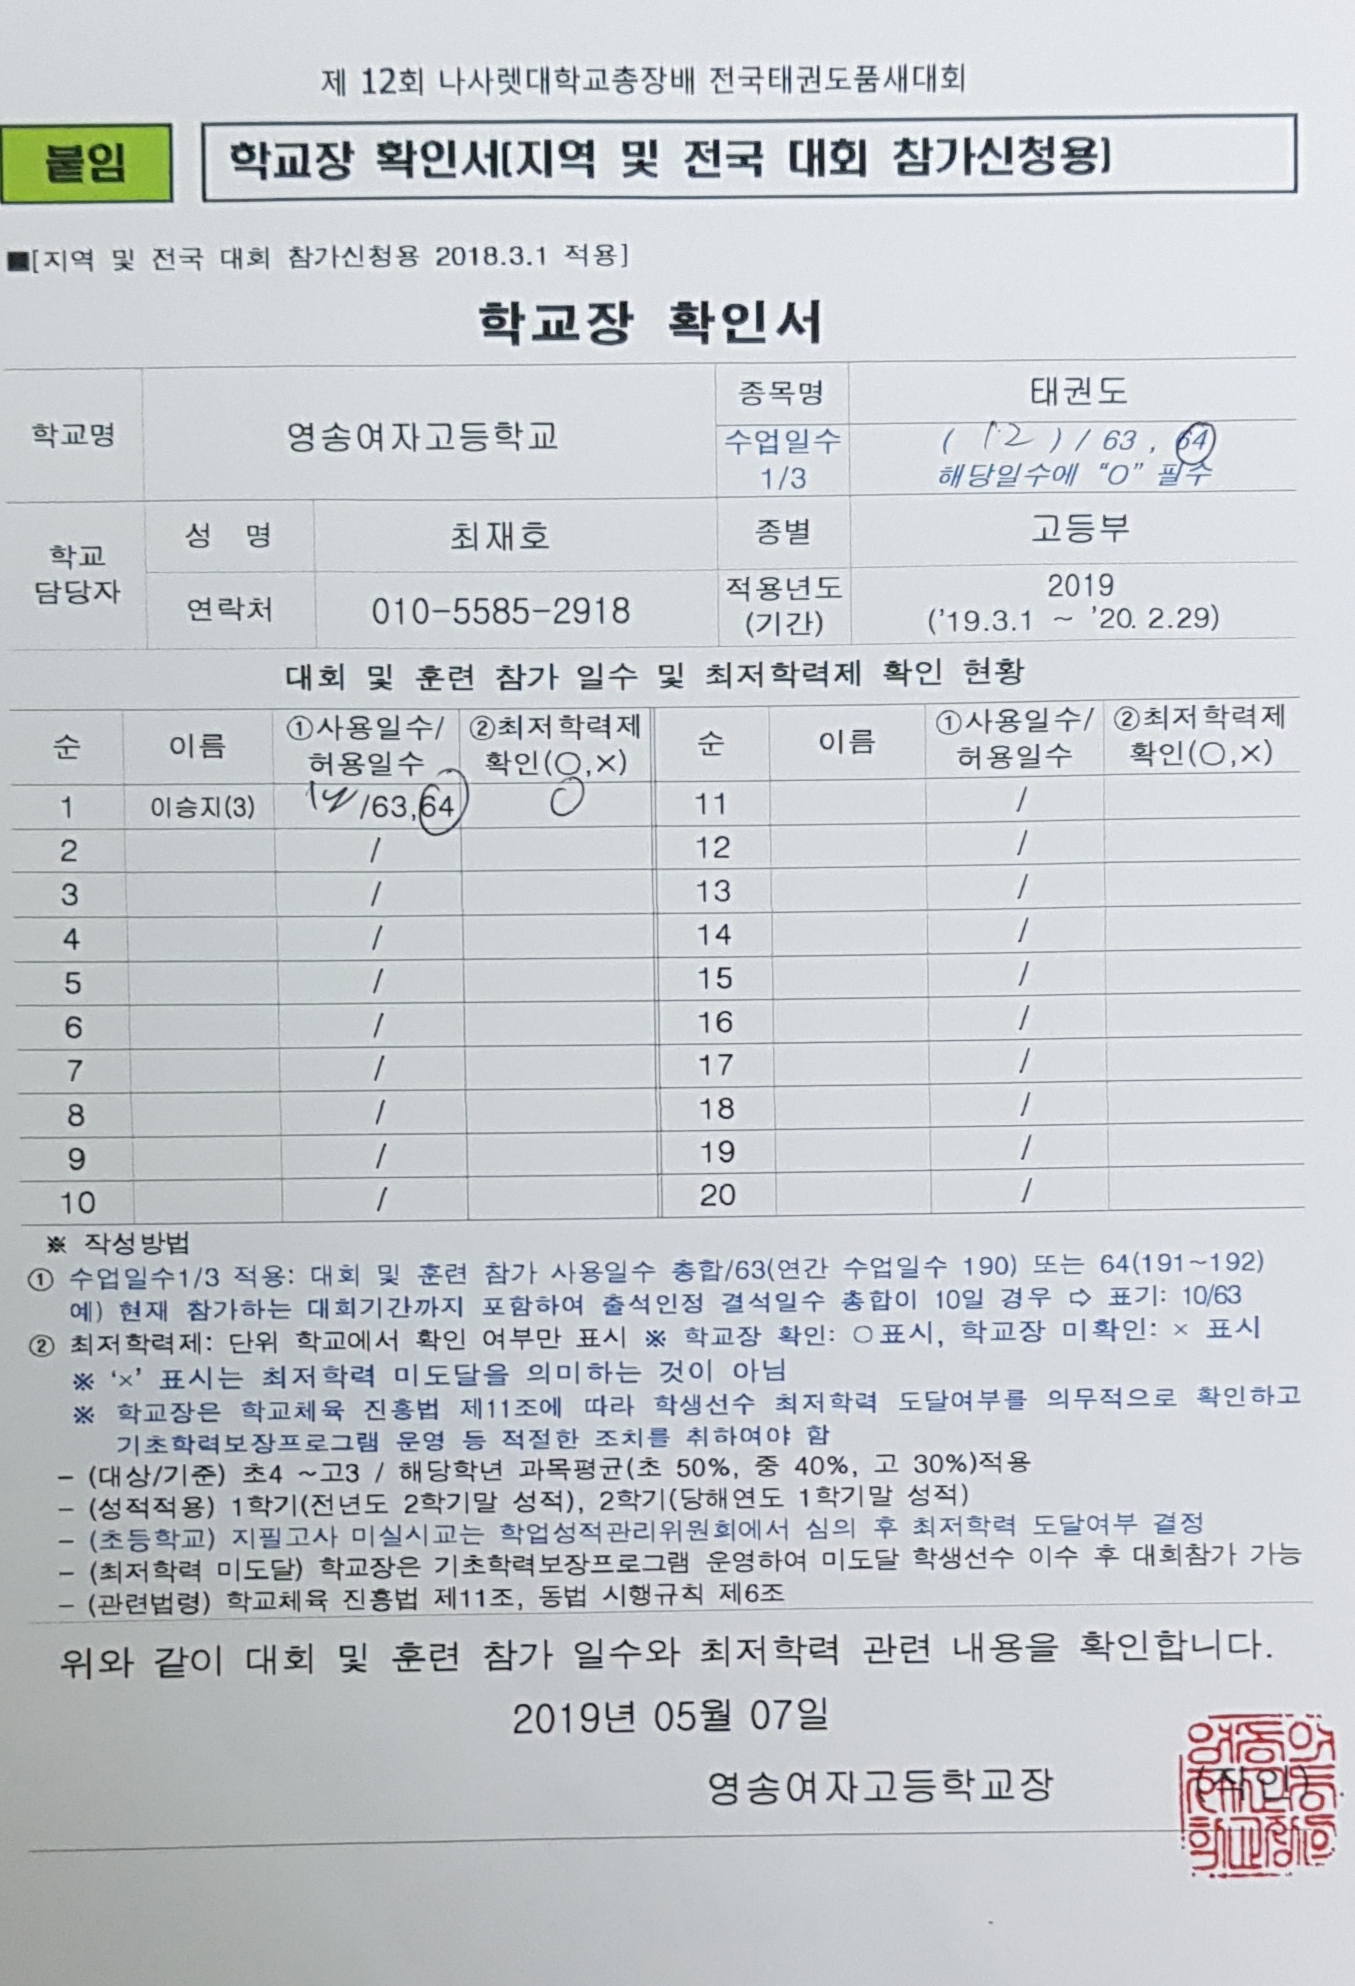 제 12회 나사렛대학교총장배 전국태권도품새대회
붙임
학교장 확인서(지역 및 전국 대회 참가신청용)
■[지역 및 전국 대회 참가신청용 2018.3.1 적용]
학교장 확인서
학교명
영송여자고등학교
종목명
태권도
수업일수
1/3
( 12 ) / 63 , 64
해당일수에 “O” 필수
학교
담당자
성 명
최재호
종별
고등부
연락처
010-5585-2918
적용년도
(기간)
2019
('19.3.1 ~ '20. 2.29)
대회 및 훈련 참가 일수 및 최저학력제 확인 현황
순 이름 ①사용일수/ ②최저학력제 순 이름 ①사용일수/ ②최저학력제
허용일수 확인(○,×) 허용일수 확인(○,×)
1 이승지(3) /63,64 O 11 /
2 / 12 /
3 / 13 /
4 / 14 /
5 / 15 /
6 / 16 /
7 / 17 /
8 / 18 /
9 / 19 /
10 / 20 /
※ 작성방법
① 수업일수1/3 적용: 대회 및 훈련 참가 사용일수 총합/63(연간 수업일수 190) 또는 64(191~192)
예) 현재 참가하는 대회기간까지 포함하여 출석인정 결석일수 총합이 10일 경우 ⇨ 표기: 10/63
② 최저학력제: 단위 학교에서 확인 여부만 표시 ※ 학교장 확인: ○표시, 학교장 미확인: × 표시
※ ‘×’ 표시는 최저학력 미도달을 의미하는 것이 아님
※ 학교장은 학교체육 진흥법 제11조에 따라 학생선수 최저학력 도달여부를 의무적으로 확인하고
기초학력보장프로그램 운영 등 적절한 조치를 취하여야 함
- (대상/기준) 초4 ~고3 / 해당학년 과목평균(초 50%, 중 40%, 고 30%)적용
- (성적적용) 1학기(전년도 2학기말 성적), 2학기(당해연도 1학기말 성적)
- (초등학교) 지필고사 미실시교는 학업성적관리위원회에서 심의 후 최저학력 도달여부 결정
- (최저학력 미도달) 학교장은 기초학력보장프로그램 운영하여 미도달 학생선수 이수 후 대회참가 가능
- (관련법령) 학교체육 진흥법 제11조, 동법 시행규칙 제6조
위와 같이 대회 및 훈련 참가 일수와 최저학력 관련 내용을 확인합니다.
2019년 05월 07일
영송여자고등학교장 (직인)